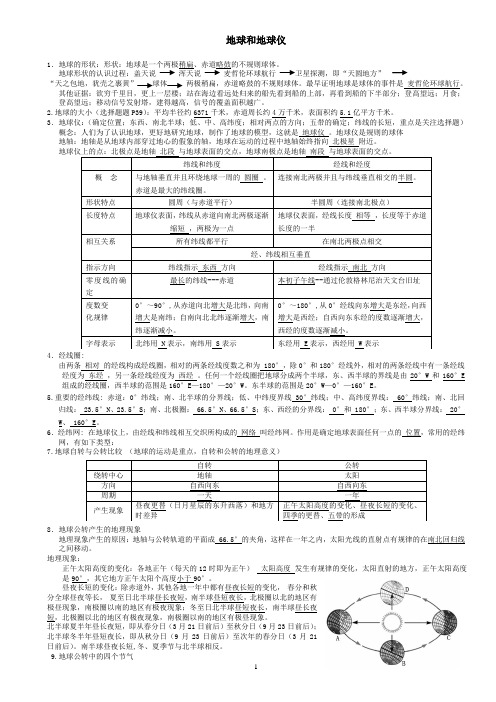 地球和地球仪
1．地球的形状：形状：地球是一个两极稍扁、赤道略鼓的不规则球体。
地球形状的认识过程：盖天说 浑天说 麦哲伦环球航行 卫星探测，即“天圆地方”
“天之包地，犹壳之裹黄” 球体 两极稍扁，赤道略鼓的不规则球体。最早证明地球是球体的事件是 麦哲伦环球航行。
其他证据：欲穷千里目，更上一层楼；站在海边看远处归来的船先看到船的上部，再看到船的下半部分；登高望远；月食；
登高望远；移动信号发射塔，建得越高，信号的覆盖面积越广。
2.地球的大小（选择题题 P39）：平均半径约6371 千米，赤道周长约4万千米，表面积约5.1亿平方千米。
3．地球仪：（确定位置；东西、南北半球；低、中、高纬度；相对两点的方向；五带的确定；纬线的长短，重点是关注选择题）
概念：人们为了认识地球，更好地研究地球，制作了地球的模型，这就是 地球仪 。地球仪是规则的球体
地轴：地轴是从地球内部穿过地心的假象的轴。地球在运动的过程中地轴始终指向 北极星 附近。
地球仪上的点：北极点是地轴 北段 与地球表面的交点。地球南极点是地轴 南段 与地球表面的交点。
纬线和纬度 经线和经度
概 念 与地轴垂直并且环绕地球一周的 圆圈 。赤道是最大的纬线圈。 连接南北两极并且与纬线垂直相交的半圆。
形状特点 圆周（与赤道平行） 半圆周（连接南北极点）
长度特点 地球仪表面，纬线从赤道向南北两极逐渐 缩短 ，两极为一点 地球仪表面，经线长度 相等 ，长度等于赤道长度的一半
相互关系 所有纬线都平行 在南北两极点相交
经、纬线相互垂直
指示方向 纬线指示 东西 方向 经线指示 南北 方向
零度线的确定 最长的纬线---赤道 本初子午线--通过伦敦格林尼治天文台旧址
度数变化规律 0°～90°，从赤道向北增大是北纬，向南增大是南纬；自南向北北纬逐渐增大，南纬逐渐减小。 0°～180°，从0°经线向东增大是东经，向西增大是西经；自西向东东经的度数逐渐增大，西经的度数逐渐减小。
字母表示 北纬用 N表示，南纬用 S表示 东经用 E表示，西经用 W表示
4．经线圈：
由两条 相对 的经线构成经线圈，相对的两条经线度数之和为 180°，除0°和180°经线外，相对的两条经线中有一条经线
经度为 东经 ，另一条经线经度为 西经 。任何一个经线圈把地球分成两个半球，东、西半球的界线是由20°W和160°E
组成的经线圈，西半球的范围是160°E—180°—20°W。东半球的范围是20°W—0°—160°E。
5.重要的经纬线：赤道：0°纬线；南、北半球的分界线；低、中纬度界线 30°纬线；中、高纬度界线： 60°纬线；南、北回
归线： 23.5°N、23.5°S；南、北极圈： 66.5°N、66.5°S；东、西经的分界线： 0°和 180°；东、西半球分界线： 20°
W、 160°E。
6．经纬网：在地球仪上，由经线和纬线相互交织所构成的 网络 叫经纬网。作用是确定地球表面任何一点的 位置。常用的经纬
网，有如下类型：
7.地球自转与公转比较 （地球的运动是重点，自转和公转的地理意义）
自转 公转
绕转中心 地轴 太阳
方向 自西向东 自西向东
周期 一天 一年
产生现象 昼夜更替（日月星辰的东升西落）和地方时差异 正午太阳高度的变化、昼夜长短的变化、四季的更替、五带的形成
8．地球公转产生的地理现象
地理现象产生的原因：地轴与公转轨道的平面成 66.5°的夹角，这样在一年之内，太阳光线的直射点有规律的在南北回归线
之间移动。
地理现象：
正午太阳高度的变化：各地正午（每天的12时即为正午） 太阳高度 发生有规律的变化，太阳直射的地方，正午太阳高度
是90°，其它地方正午太阳个高度小于90°。
昼夜长短的变化：除赤道外，其他各地一年中都有昼夜长短的变化， 春分和秋
分全球昼夜等长， 夏至日北半球昼长夜短，南半球昼短夜长，北极圈以北的地区有
极昼现象，南极圈以南的地区有极夜现象；冬至日北半球昼短夜长，南半球昼长夜
短，北极圈以北的地区有极夜现象，南极圈以南的地区有极昼现象。
北半球夏半年昼长夜短，即从春分日（3月21日前后）至秋分日（9月23日前后）；
北半球冬半年昼短夜长，即从秋分日（9 月 23 日前后）至次年的春分日（3 月 21
日前后）。南半球昼夜长短，冬、夏季节与北半球相反。
9.地球公转中的四个节气
A
B
C
D
1